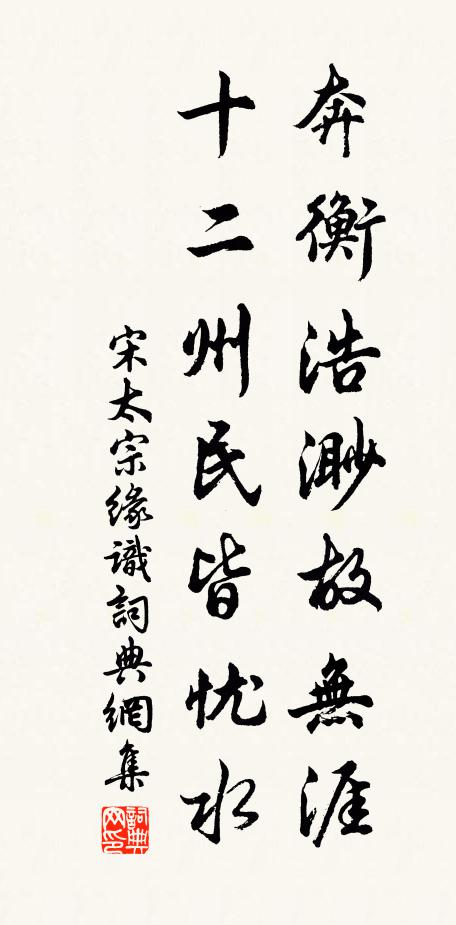 奔衡浩渺故無涯
十二州民皆忧水
宋太宗緣識詞典網集
詞典网印